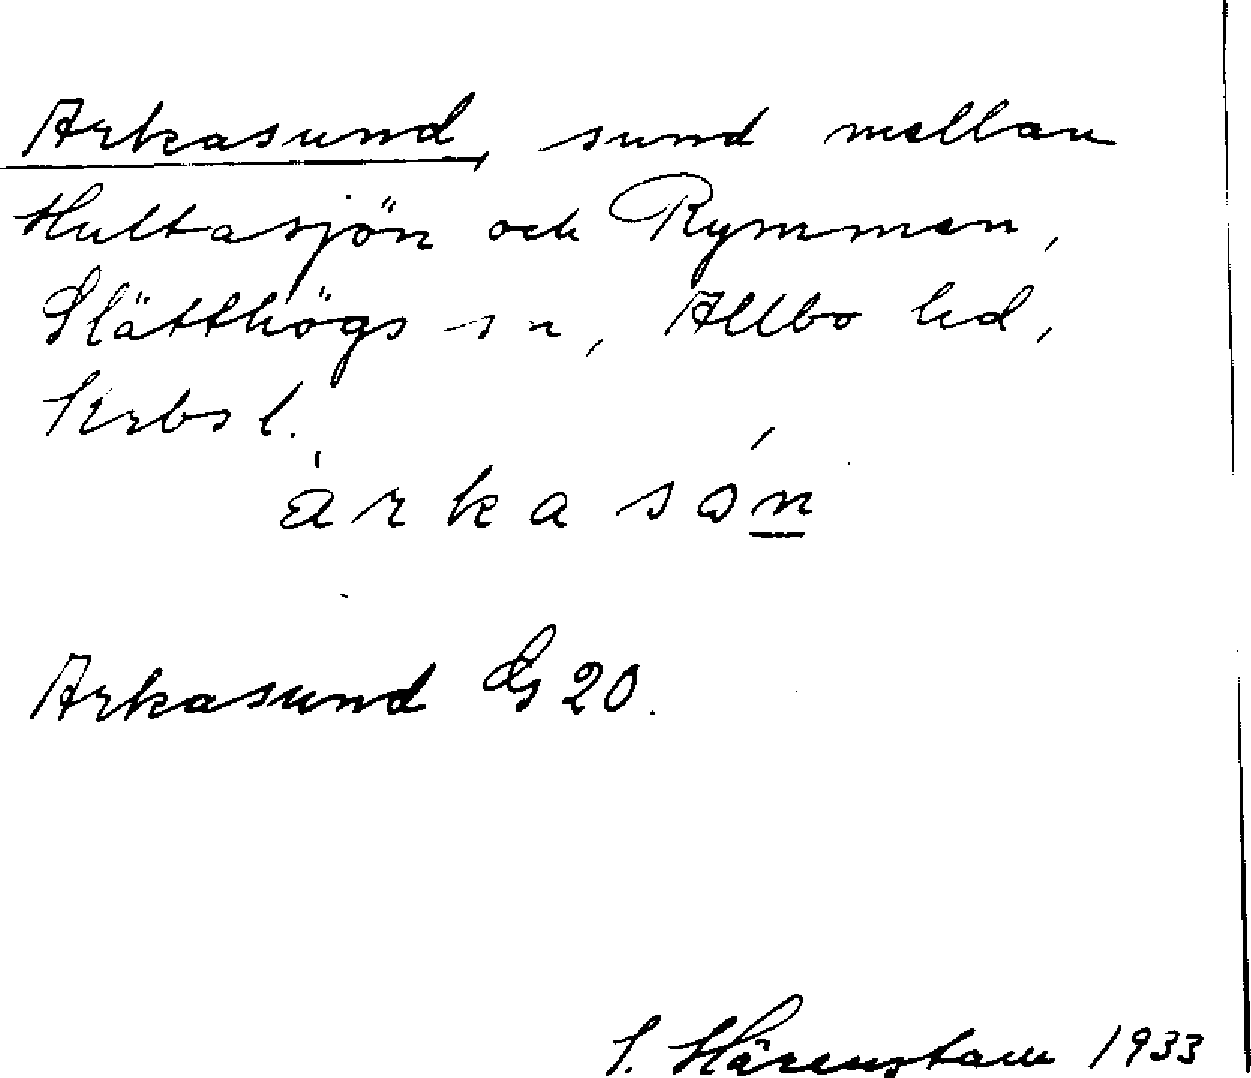 Arkasund, sund mellan
Hultasjön och Rymmen,
Slätthögs sn, Allbo hd,
Krbs l.
árkasón
Arkasund G 20.
S. Härenstam 1933